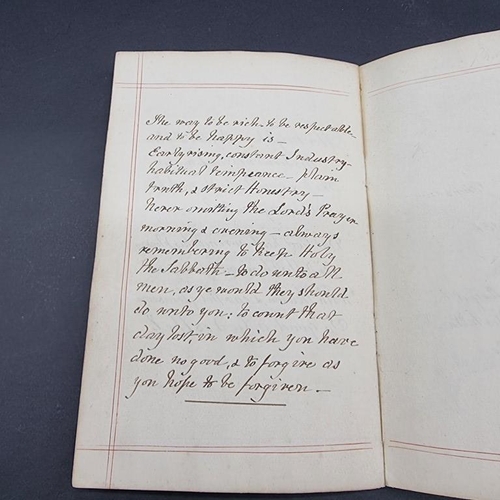 The way to be rich - to be respectable -
and to be happy is -
Early rising, constant Industry -
habitual temperance - plain
truth, & strict Honestry -
never omitting the Lord's Prayer
morning & evening - always
remembering to keep Holy
the Sabbath - to do unto all
men, as ye would they should
do unto you; to count that
day lost, in which you have
done no good, & to forgive as
you hope to be forgiven -